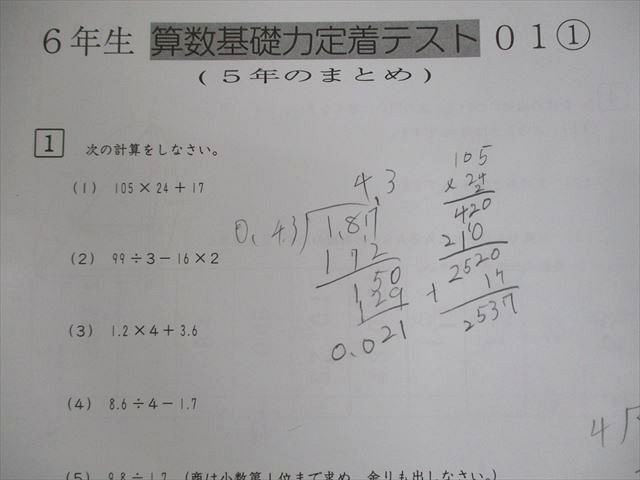 6年生 算数基礎力定着テスト 01①
(5年のまとめ)
1 次の計算をしなさい。
(1) 105×24+17
(2) 99÷3-16×2
(3) 1.2×4+3.6
(4) 8.6÷4-1.7
(5) 9.8÷1.7 (商は小数第1位まで求め、余りも出しなさい。)
4.3
0.43 1.87
172
150
129
0.021
105
×24
420
210
2520
+ 17
2537
4